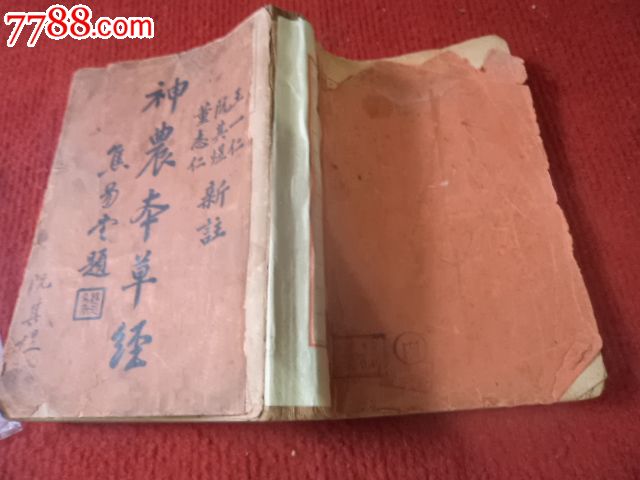 7788.com
王一仁
阮其煜
董志仁
新註
神農本草經
焦易堂題